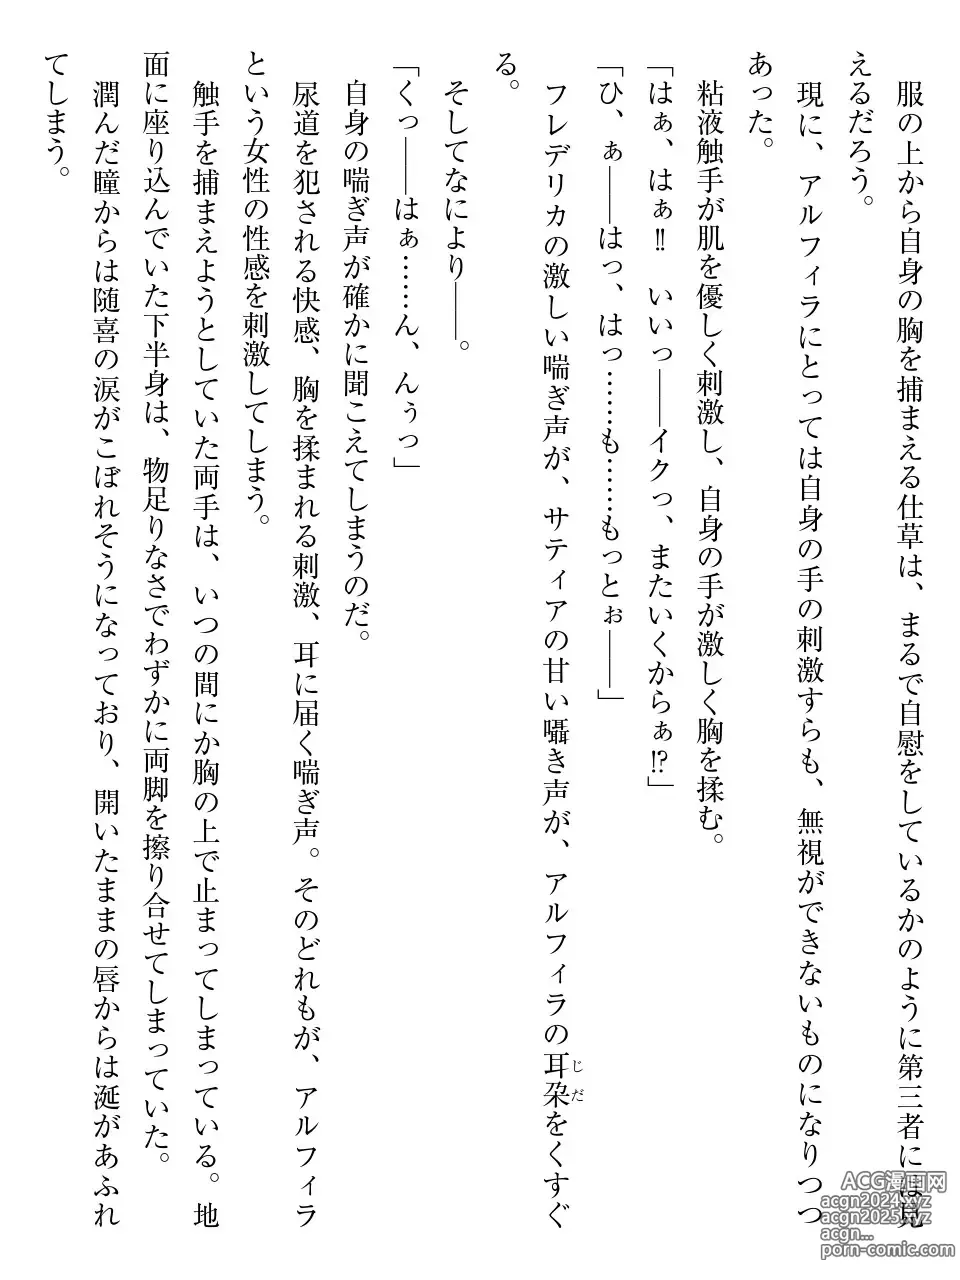 服の上から自身の胸を捕まえる仕草は、まるで自慰をしているかのように第三者には見
えるだろう。
現に、アルフィラにとっては自身の手の刺激すらも、無視ができないものになりつつ
あった。
粘液触手が肌を優しく刺激し、自身の手が激しく胸を揉む。
「はぁ、はぁ‼　いいっ――イクっ、またいくからぁ⁉」
「ひ、ぁ――はっ、はっ……も……もっとぉ――」
フレデリカの激しい喘ぎ声が、サティアの甘い囁き声が、アルフィラの耳朶をくすぐ
じだ
る。
そしてなにより――。
「くっ――はぁ……ん、んぅっ」
自身の喘ぎ声が確かに聞こえてしまうのだ。
尿道を犯される快感、胸を揉まれる刺激、耳に届く喘ぎ声。そのどれもが、アルフィラ
という女性の性感を刺激してしまう。
触手を捕まえようとしていた両手は、いつの間にか胸の上で止まってしまっている。地
面に座り込んでいた下半身は、物足りなさでわずかに両脚を擦り合せてしまっていた。
潤んだ瞳からは随喜の涙がこぼれそうになっており、開いたままの唇からは涎があふれ
てしまう。
ACG漫画网
acgn2024.xyz
acgn2025.xyz
acgn...
porn-comic.com